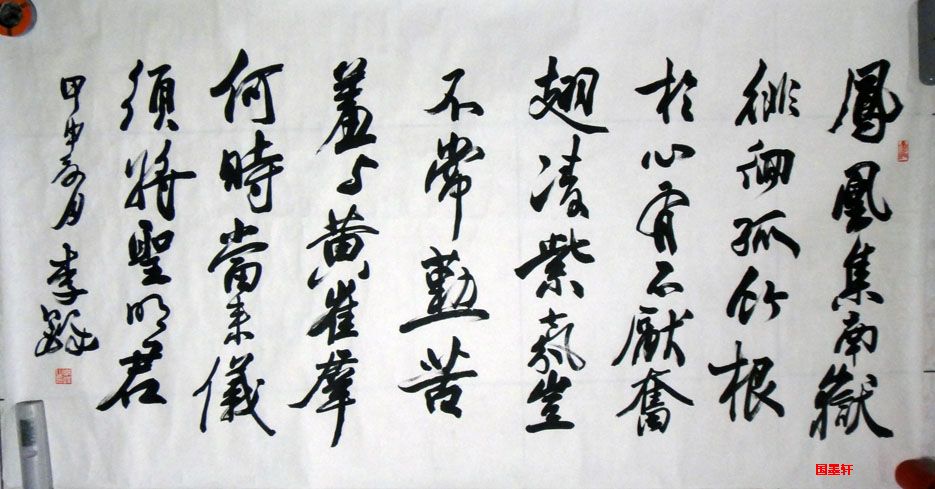 鳳凰集南嶽
徘徊孤竹根
於心有不厭奮
翅凌紫氛豈
不常勤苦
羞与黄雀羣
何時當来儀
須將聖明君
甲申春月 李
国墨轩